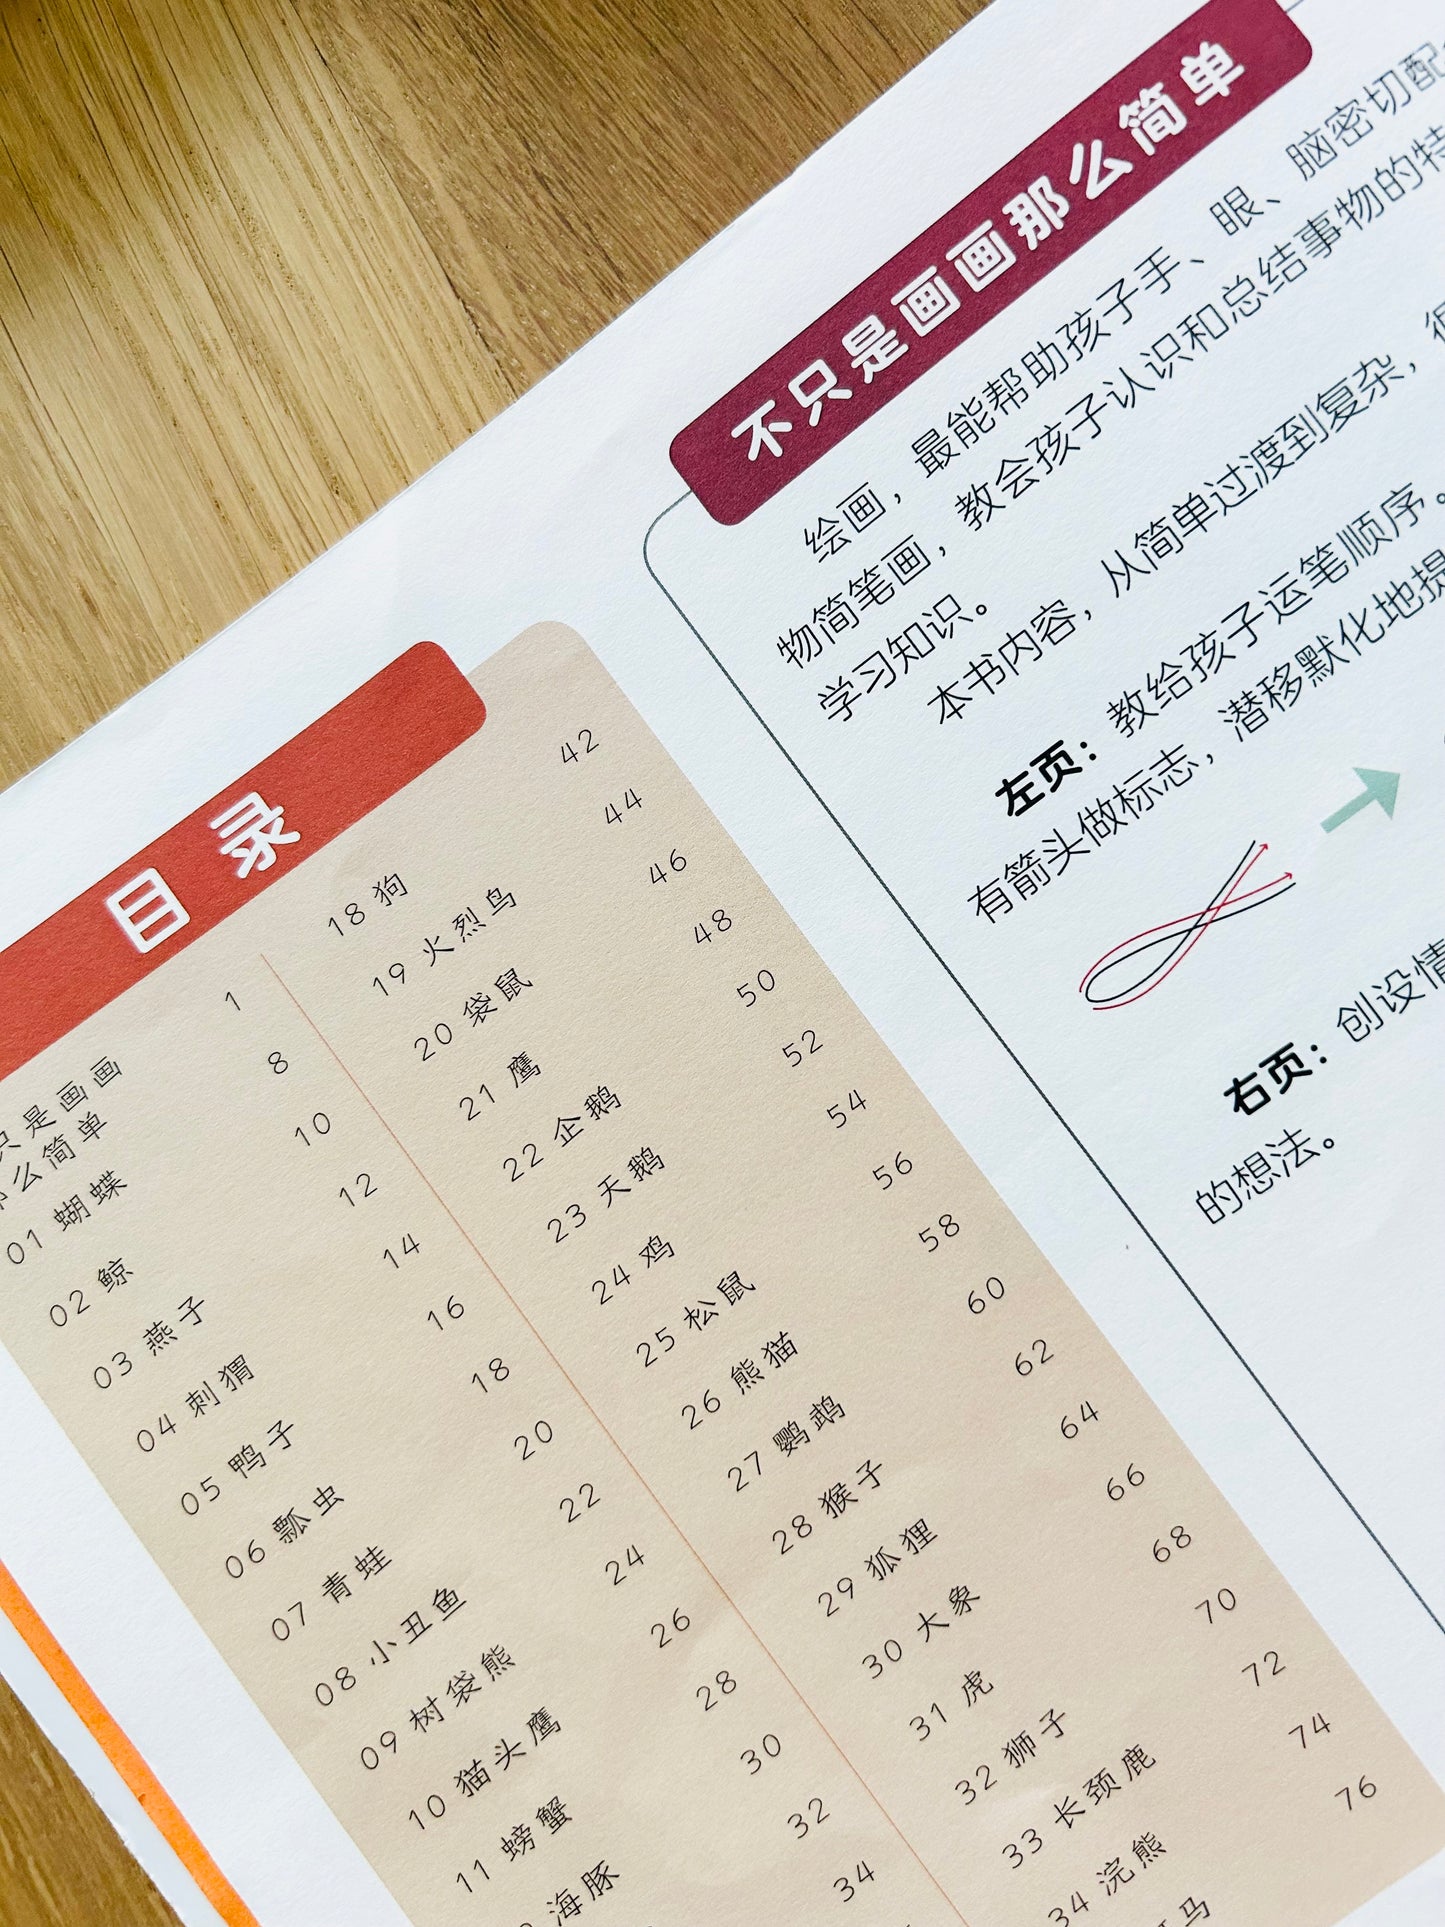 目录
只是画画
么简单 1
01 蝴蝶 8
02 鲸 10
03 燕子 12
04 刺猬 14
05 鸭子 16
06 瓢虫 18
07 青蛙 20
08 小丑鱼 22
09 树袋熊 24
10 猫头鹰 26
11 螃蟹 28
海豚 30
32
34
18 狗 42
19 火烈鸟 44
20 袋鼠 46
21 鹰 48
22 企鹅 50
23 天鹅 52
24 鸡 54
25 松鼠 56
26 熊猫 58
27 鹦鹉 60
28 猴子 62
29 狐狸 64
30 大象 66
31 虎 68
32 狮子 70
33 长颈鹿 72
34 浣熊 74
马 76
不只是画画那么简单
绘画，最能帮助孩子手、眼、脑密切配
物简笔画，教会孩子认识和总结事物的特
学习知识。
本书内容，从简单过渡到复杂，
左页：教给孩子运笔顺序。
有箭头做标志，潜移默化地提
右页：创设情
的想法。